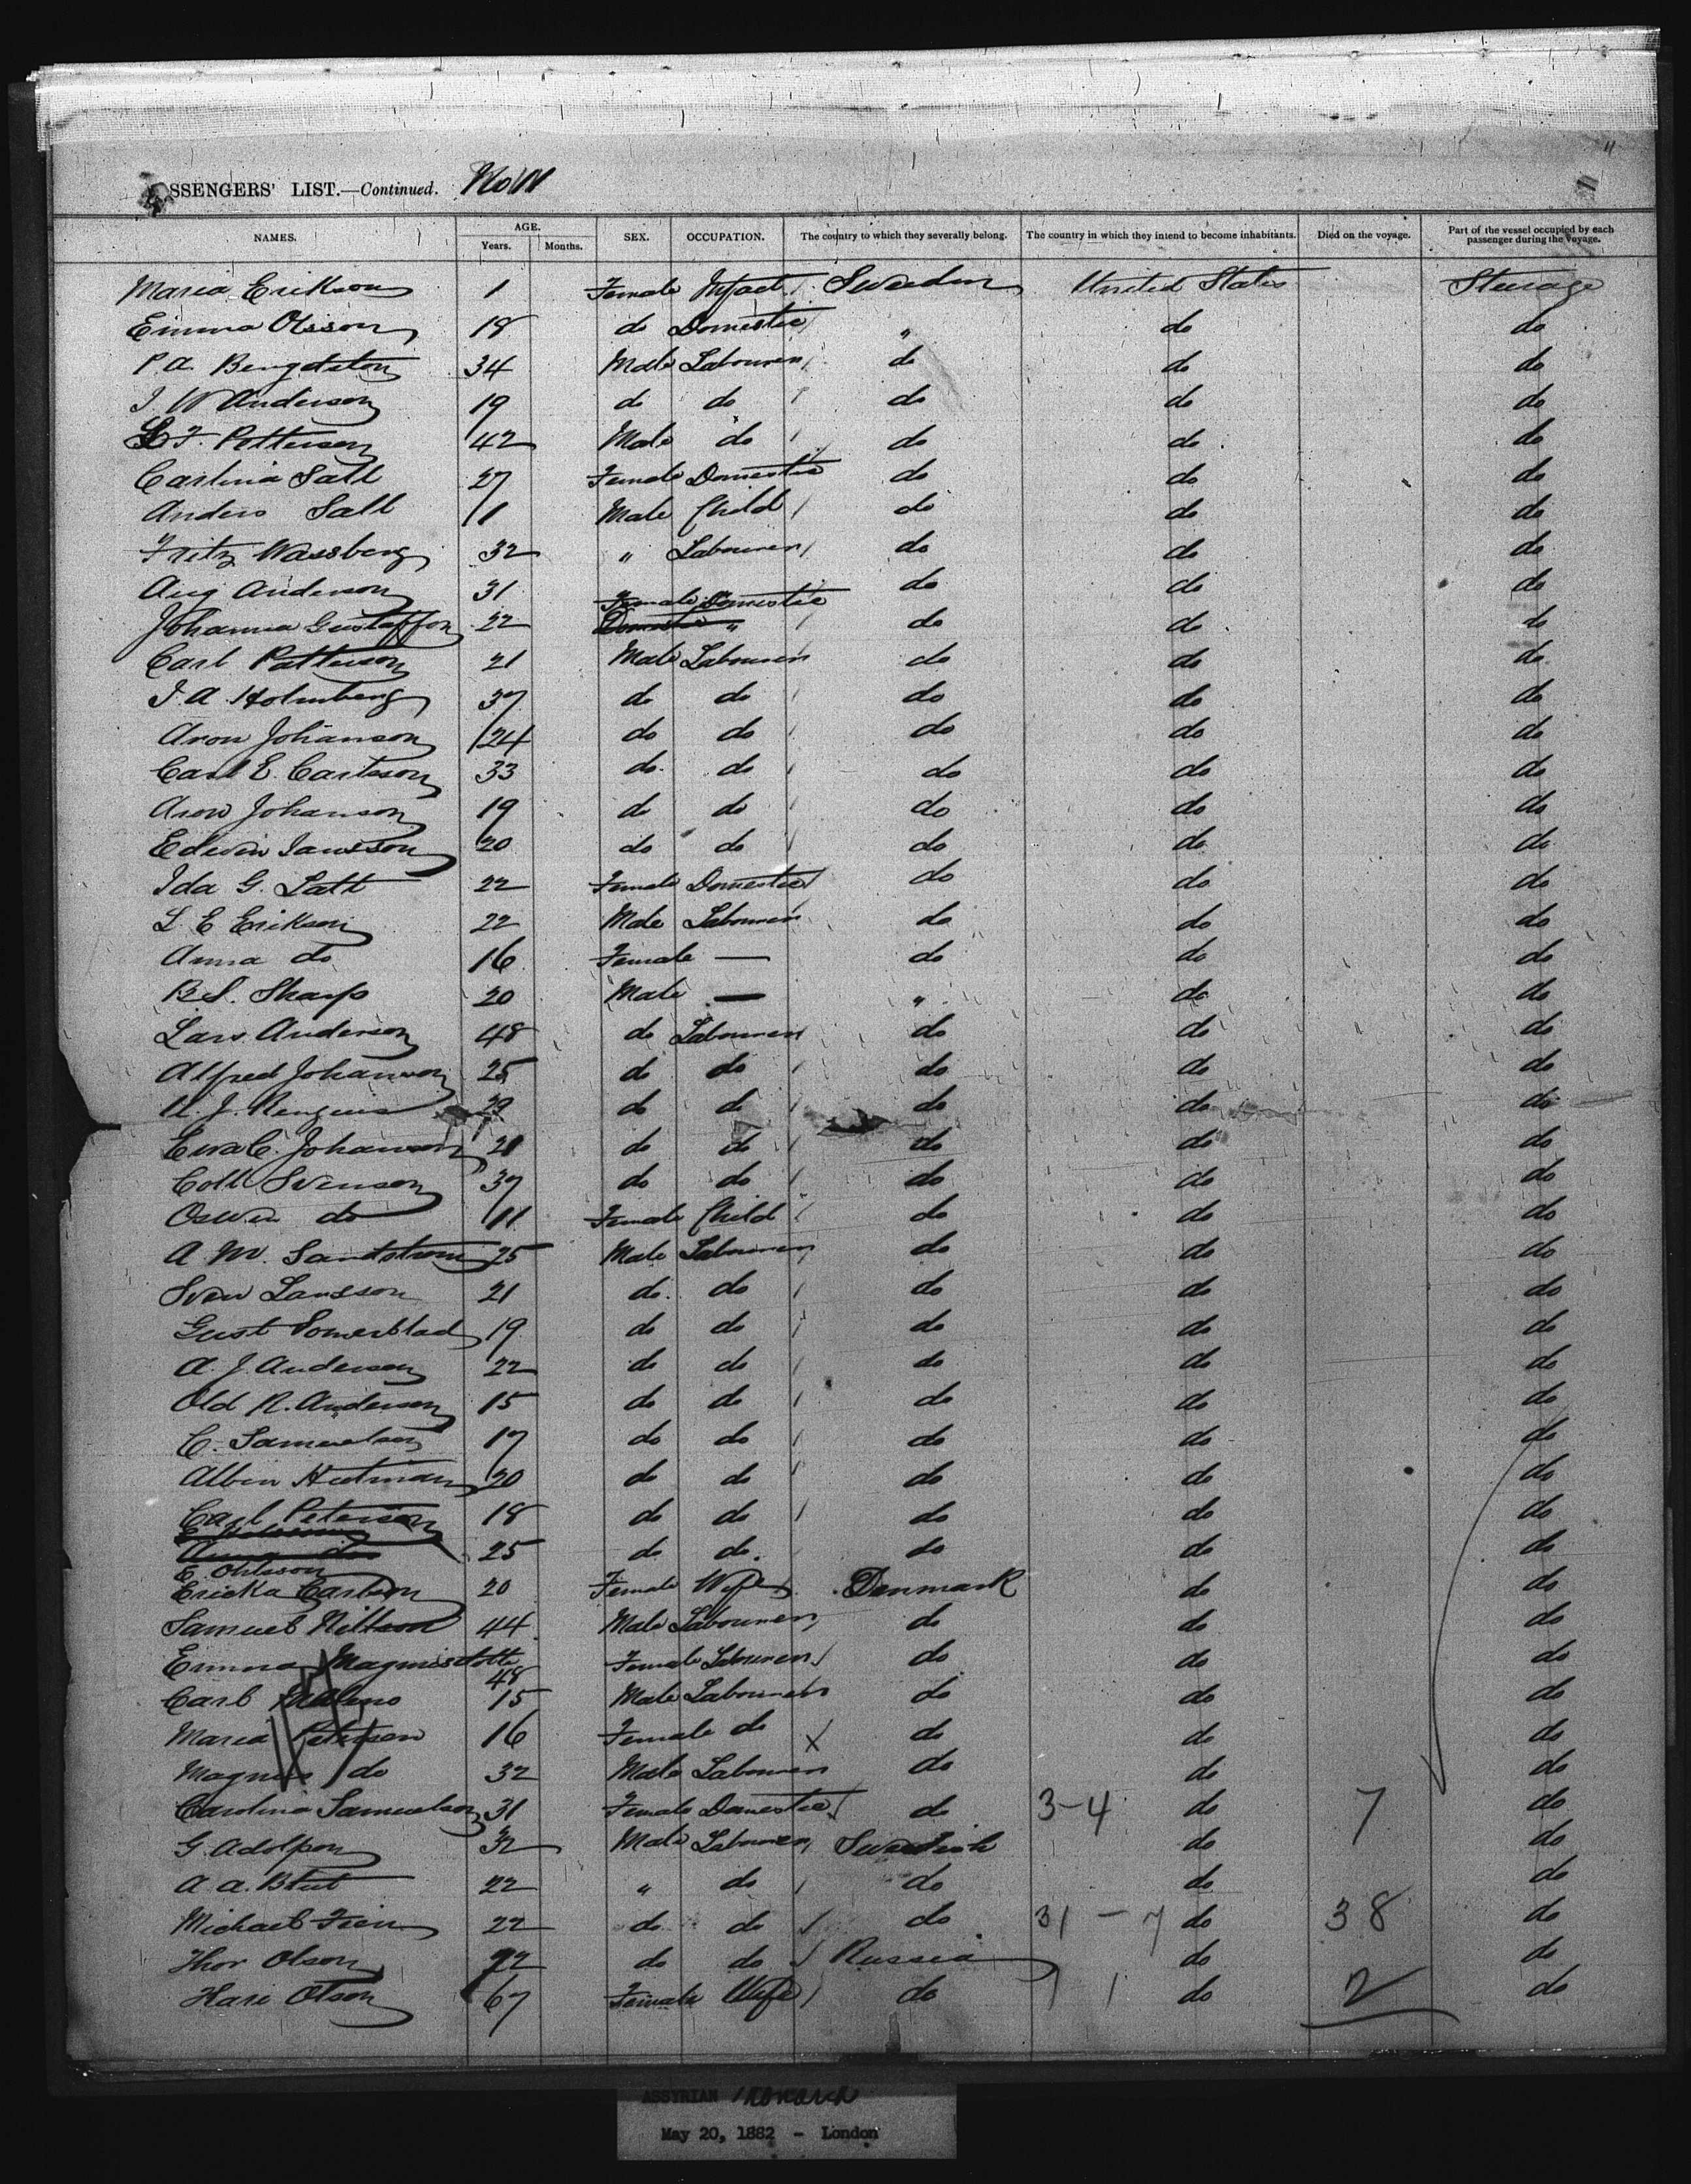 "
SSENGERS' LIST.—Continued. No 11
NAMES. AGE. Years. Months. SEX. OCCUPATION. The country to which they severally belong. The country in which they intend to become inhabitants. Died on the voyage. Part of the vessel occupied by each passenger during the voyage.
Maria Erikson 1 Female Infant Sweden United States Steerage
Emma Olsson 18 do Domestic " do do
P. A. Bengtston 34 Male Labourer do do do
J. W Anderson 19 do do do do do
L F. Petterson 42 Male do do do do
Carlina Sall 27 Female Domestic do do do
Anders Sall 11 Male Child do do do
Fritz Wassberg 32 " Labourer do do do
Aug Anderson 31 Female Domestic do do do
Johanna Gustaffson 22 " do do do
Carl Patterson 21 Male Labourer do do do
J. A. Holmberg 37 do do do do do
Aron Johanson 24 do do do do do
Carl E. Carlsson 33 do do do do do
Aron Johanson 19 do do do do do
Edwin Jansson 20 do do do do do
Ida G. Latt 22 Female Domestic do do do
L. E Erikson 22 Male Labourer do do do
Anna do 16 Female — do do do
B. S. Sharp 20 Male — " do do
Lars Anderson 48 do Labourer do do do
Alfred Johanson 25 do do do do do
J. 29 do do do do do
Eva C. Johanson 21 do do do do do
Svenson 37 do do do do do
do 11 Female Child do do do
A M. Sandstrom 25 Male Labourer do do do
Sven Larsson 21 do do do do do
Gust 19 do do do do do
A. J. Anderson 22 do do do do do
Old R. Anderson 15 do do do do do
C. Samuelson 17 do do do do do
Albin Hultman 20 do do do do do
Carl Peterson 18 do do do do do
Anna do 25 do do. do do do
E. Ohlsson
Ericka Carlson 20 Female Wife Denmark do do
Samuel Nillson 44 Male Labourer do do do
Emma Magnisdotte 48 Female Labourer do do do
Carl 15 Male Labourer do do do
Maria Petersen 16 Female do X do do do
Magnus do 32 Male Labourer do do do
Carolina Samuelson 31 Female Domestic do 3-4 do 7 do
G. Adolpson 32 Male Labourer Swedish do do
A. A. 22 " do do do do
Michael 22 do do do 31 - 7 do 38 do
Thor Olson 72 do do Russia do do
Hari Olson 67 Female Wife do 1 1 do 2 do
ASSYRIAN Monarch
May 20, 1882 - London